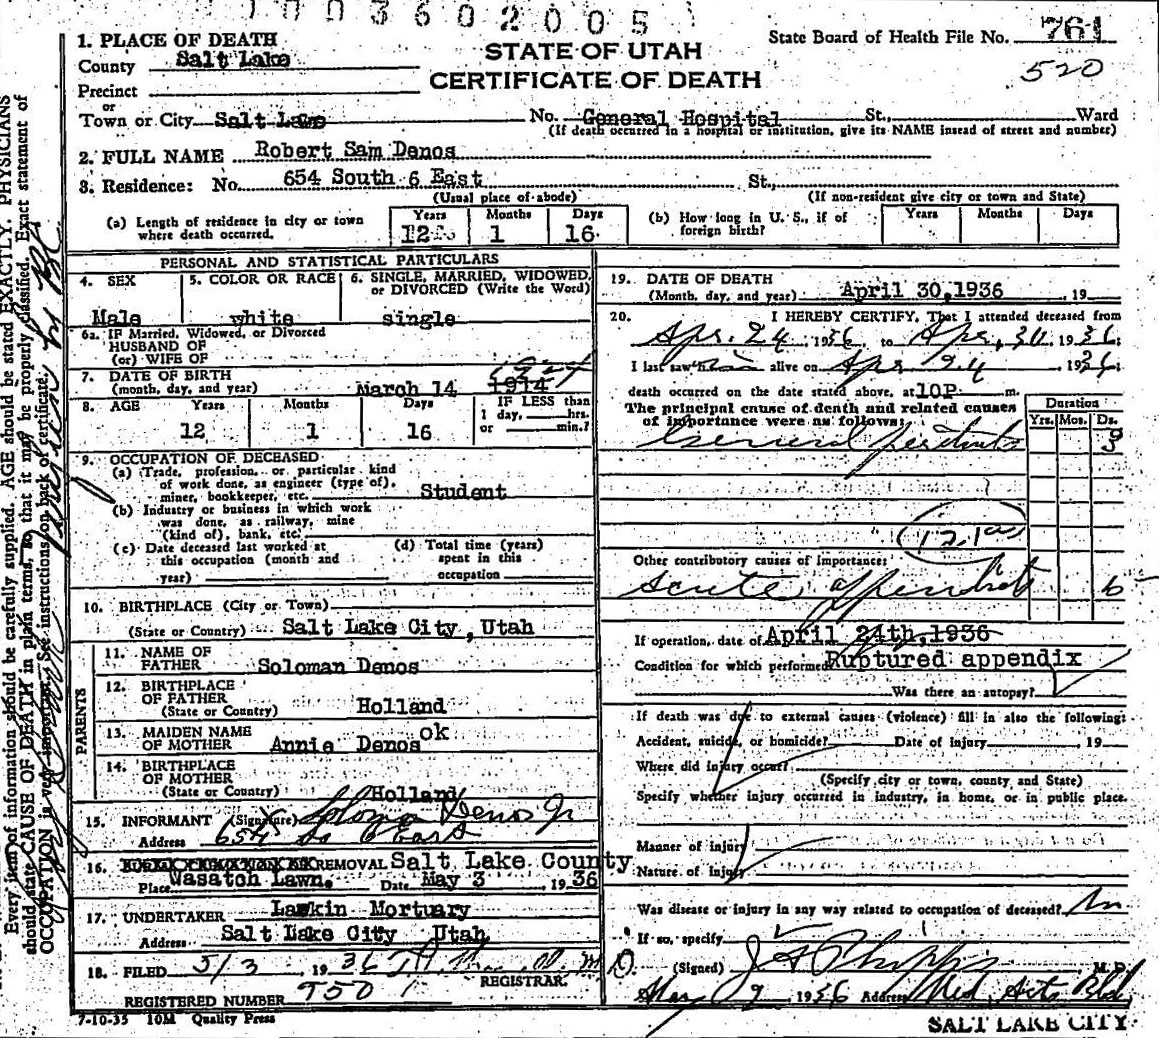 1003602005
1. PLACE OF DEATH
STATE OF UTAH
State Board of Health File No. 761
County Salt Lake
CERTIFICATE OF DEATH
520
Precinct
or
Town or City Salt Lake No. General Hospital St., Ward
(If death occurred in a hospital or institution, give its NAME insead of street and number)
2. FULL NAME Robert Sam Denos
3. Residence: No. 654 South 6 East St.,
(Usual place of abode) (If non-resident give city or town and State)
(a) Length of residence in city or town where death occurred. Years 12 Months 1 Days 16
(b) How long in U. S., if of foreign birth? Years Months Days
PERSONAL AND STATISTICAL PARTICULARS
4. SEX Male
5. COLOR OR RACE white
6. SINGLE, MARRIED, WIDOWED, or DIVORCED (Write the Word) single
6a. IF Married, Widowed, or Divorced
HUSBAND OF
(or) WIFE OF
7. DATE OF BIRTH
(month, day, and year) March 14 1914 1924
8. AGE Years 12 Months 1 Days 16
IF LESS than
1 day, hrs.
or min.?
9. OCCUPATION OF DECEASED
(a) Trade, profession, or particular kind
of work done, as engineer (type of),
miner, bookkeeper, etc. Student
(b) Industry or business in which work
was done, as railway, mine
(kind of), bank, etc.
(c) Date deceased last worked at
this occupation (month and
year)
(d) Total time (years)
spent in this
occupation
10. BIRTHPLACE (City or Town)
(State or Country) Salt Lake City, Utah
PARENTS
11. NAME OF
FATHER Soloman Denos
12. BIRTHPLACE
OF FATHER
(State or Country) Holland
13. MAIDEN NAME
OF MOTHER Annie Denos ok
14. BIRTHPLACE
OF MOTHER
(State or Country) Holland
15. INFORMANT (Signature) Denos Jr
Address 654 So 6 East
16. REMOVAL Salt Lake County
Place Wasatch Lawn. Date May 3 1936
17. UNDERTAKER Larkin Mortuary
Address Salt Lake City Utah
18. FILED 5/3 1936
REGISTRAR.
REGISTERED NUMBER 950
7-10-35 10M Quality Press
19. DATE OF DEATH
(Month, day, and year) April 30,1936 19
20. I HEREBY CERTIFY, That I attended deceased from
Apr. 24, 1936 to Apr, 30, 1936
I last saw him alive on Apr 24 1936
death occurred on the date stated above, at 10P m.
The principal cause of death and related causes
of importance were as follows:
Duration
Yrs. Mos. Ds.
General peritonitis
121a
Other contributory causes of Importance:
acute appendicitis 6
If operation, date of April 24th,1936
Condition for which performed Ruptured appendix
Was there an autopsy?
If death was due to external causes (violence) fill in also the following:
Accident, suicide, or homicide? Date of injury 19
Where did injury occur?
(Specify city or town, county and State)
Specify whether injury occurred in industry, in home, or in public place.
Manner of injury
Nature of injury
Was disease or injury in any way related to occupation of deceased? no
If so, specify
(Signed) Phipps M. D.
1936 Address Med. Arts Bld
SALT LAKE CITY
Every item of information should be carefully supplied. AGE should be stated EXACTLY. PHYSICIANS
should state CAUSE OF DEATH in plain terms, so that it may be properly classified. Exact statement of
OCCUPATION is very important. See instructions on back of certificate.